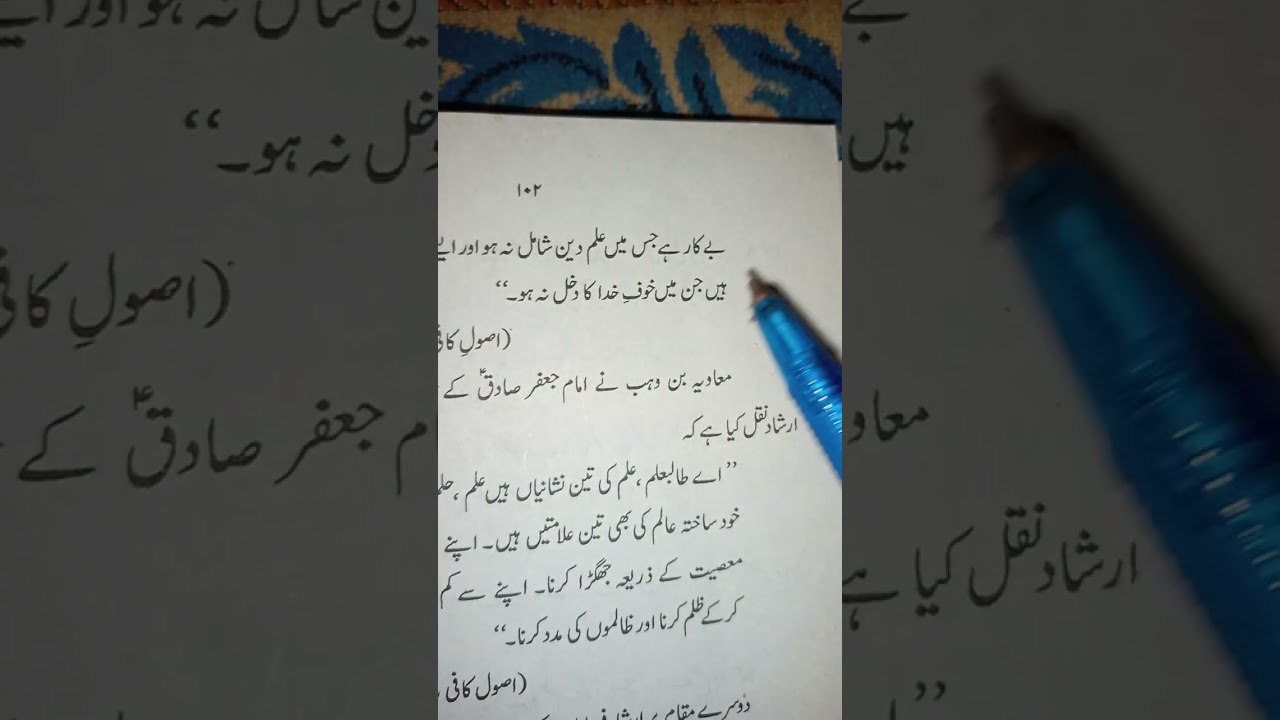 ۱۰۲
بے کار ہے جس میں علم دین شامل نہ ہو اور ایسے
ہیں جن میں خوفِ خدا کا دخل نہ ہو۔‘‘
(اصولِ کافی
معاویہ بن وہب نے امام جعفر صادقؑ کے
ارشاد نقل کیا ہے کہ
’’اے طالبعلم ،علم کی تین نشانیاں ہیں علم ،حلم
خود ساختہ عالم کی بھی تین علامتیں ہیں۔ اپنے
معصیت کے ذریعہ جھگڑا کرنا۔ اپنے سے کم
کر کے ظلم کرنا اور ظالموں کی مدد کرنا۔‘‘
(اصول کافی
دوسرے مقام پر ارشاد